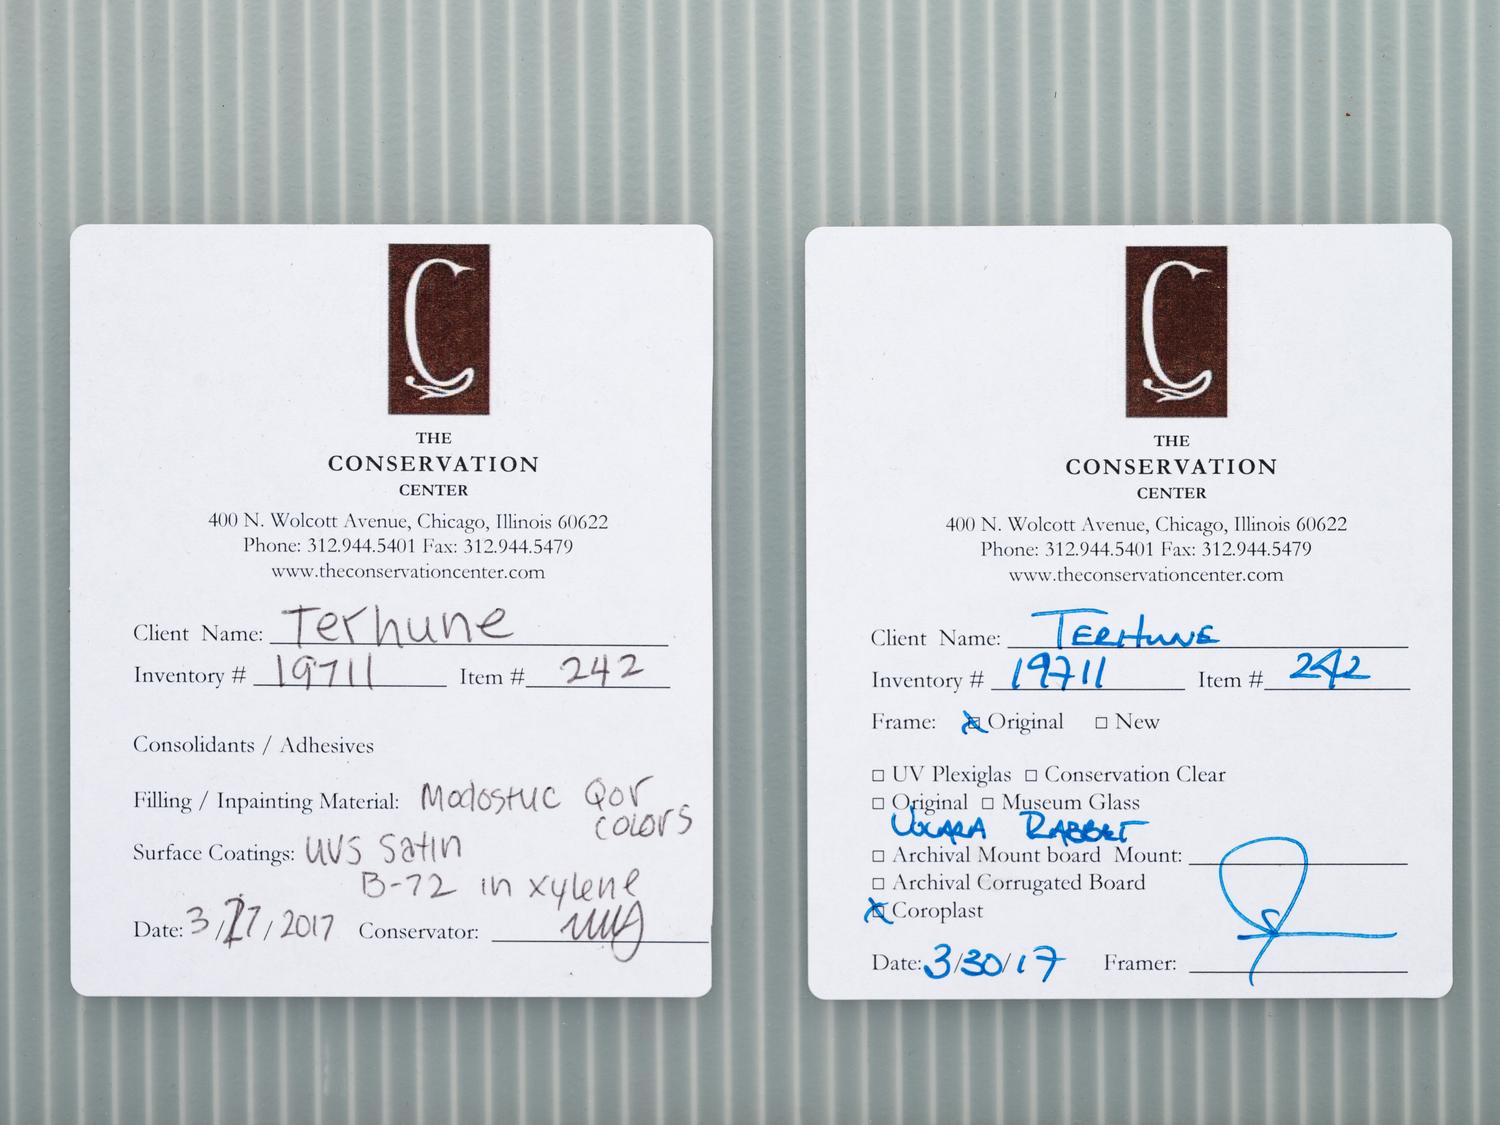 C
THE
CONSERVATION
CENTER
400 N. Wolcott Avenue, Chicago, Illinois 60622
Phone: 312.944.5401 Fax: 312.944.5479
www.theconservationcenter.com
Client Name: Terhune
Inventory # 19711 Item # 242
Consolidants / Adhesives
Filling / Inpainting Material: Modostuc Qor
colors
Surface Coatings: UVS Satin
B-72 in xylene
Date: 3/27/2017 Conservator:
C
THE
CONSERVATION
CENTER
400 N. Wolcott Avenue, Chicago, Illinois 60622
Phone: 312.944.5401 Fax: 312.944.5479
www.theconservationcenter.com
Client Name: TERHUNE
Inventory # 19711 Item # 242
Frame: Original New
UV Plexiglas Conservation Clear
Original Museum Glass
RABBET
Archival Mount board Mount:
Archival Corrugated Board
Coroplast
Date: 3/30/17 Framer: